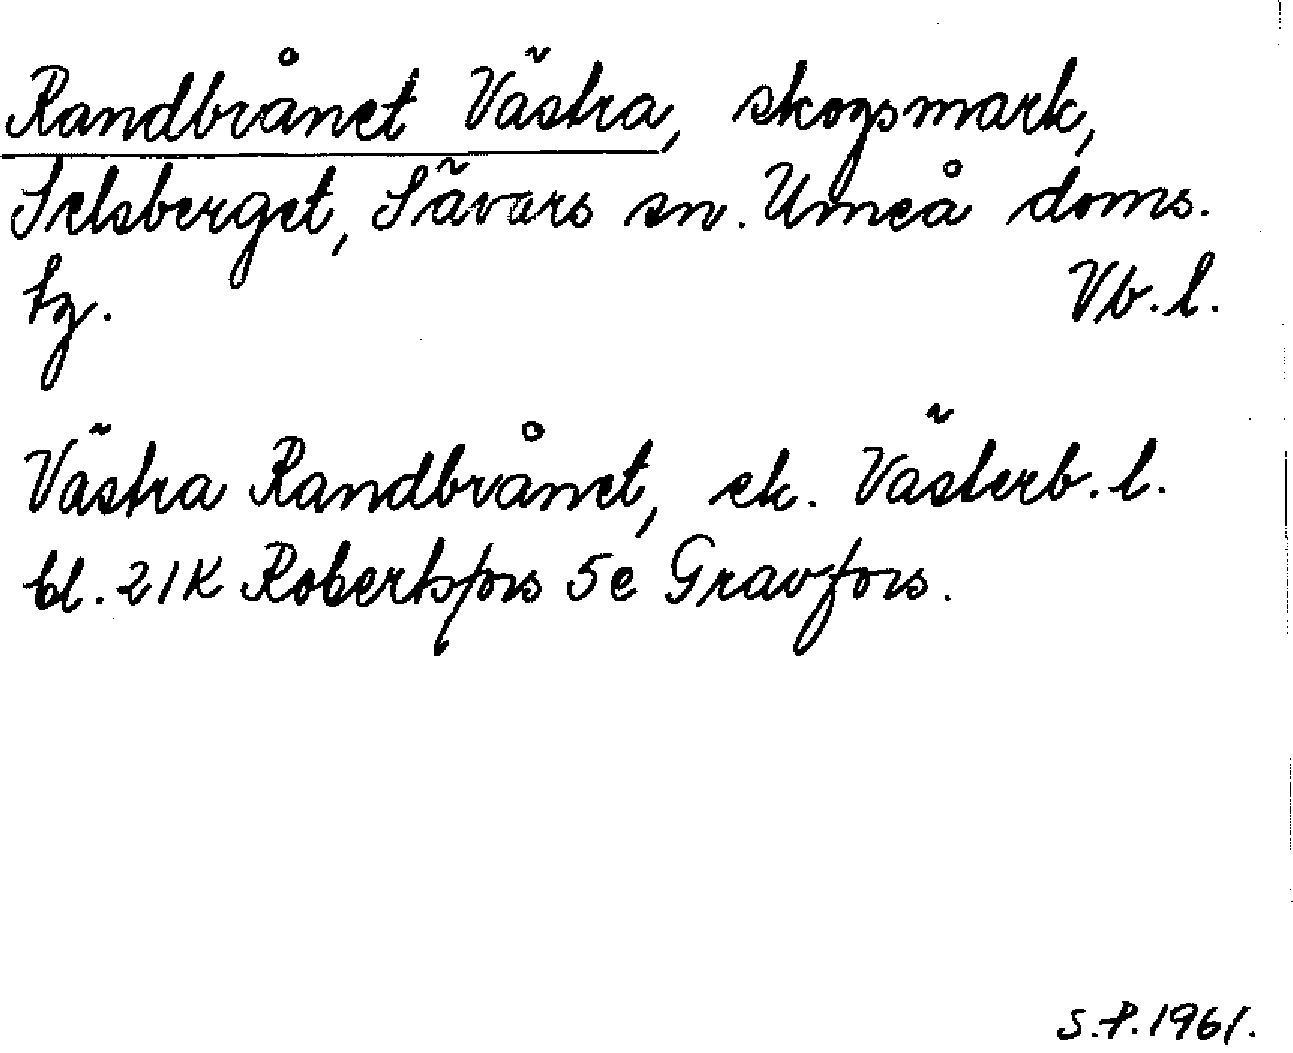 Randbrånet Västra, skogsmark,
Selsberget, Sävars sn. Umeå doms.
tg. Vb.l.
Västra Randbrånet, ek. Västerb.l.
bl. 21K Robertsfors 5e Gravfors.
S.P. 1961.